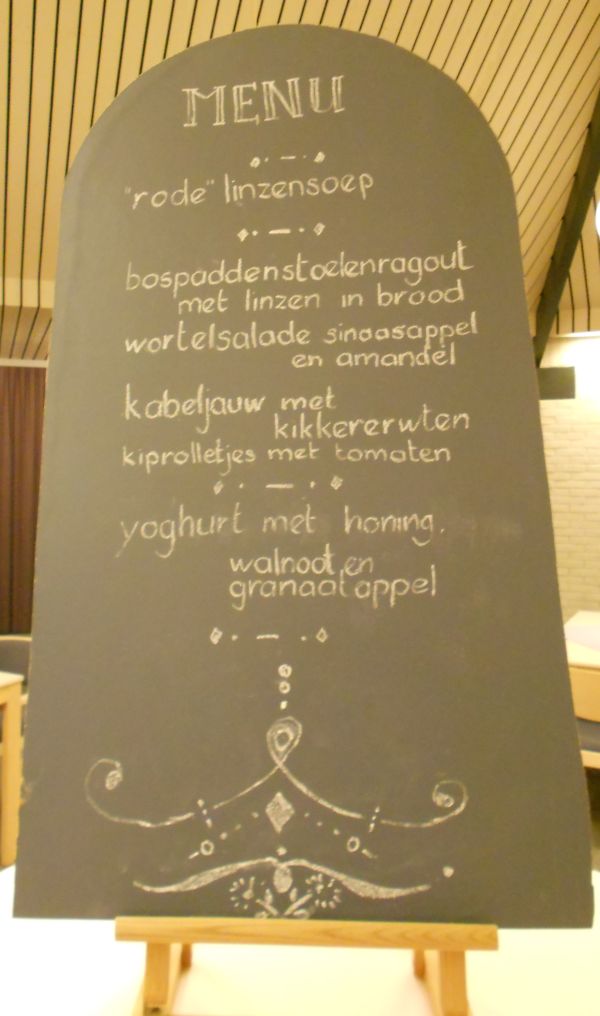 MENU
"rode" linzensoep
bospaddenstoelenragout
met linzen in brood
wortelsalade sinaasappel
en amandel
kabeljauw met
kikkererwten
kiprolletjes met tomaten
yoghurt met honing,
walnoot en
granaatappel